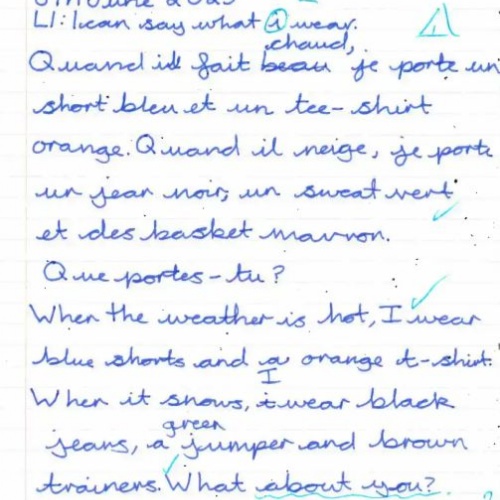 LI: I can say what I wear.
chaud,
Quand il fait beau je porte un
short bleu et un tee-shirt
orange. Quand il neige, je porte
un jean noir, un sweat vert
et des basket marron.
Que portes-tu?
When the weather is hot, I wear
blue shorts and a orange t-shirt.
I
When it snows, i wear black
green
jeans, a jumper and brown
trainers. What about you?